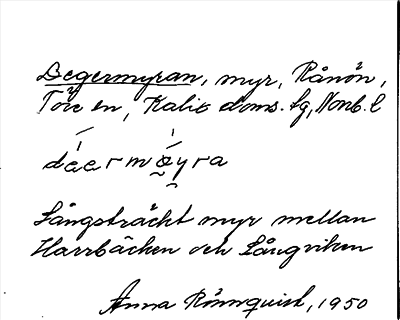 Degermyran, myr, Rånön,
Töre sn, Kalix doms. tg, Nonb. l
déermøyra
Långsträckt myr mellan
Harrbäcken och Långviken
Anna Rönnquist, 1950